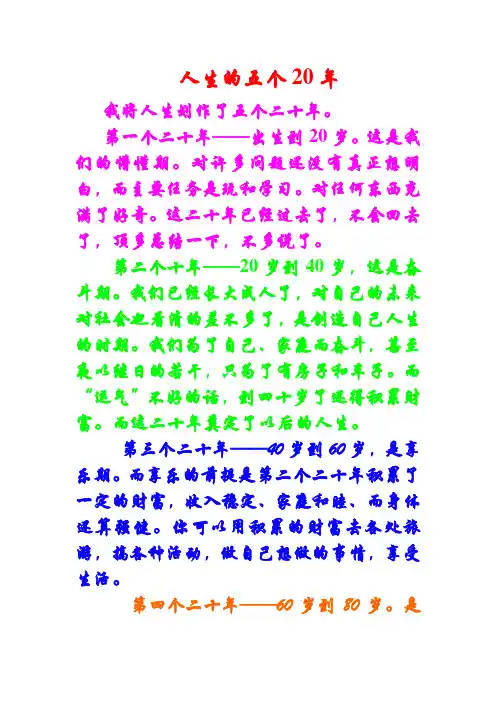 人生的五个20年
我将人生划作了五个二十年。
第一个二十年——出生到20岁。这是我
们的懵懂期。对许多问题还没有真正想明
白，而主要任务是玩和学习。对任何东西充
满了好奇。这二十年已经过去了，不会回去
了，顶多总结一下，不多说了。
第二个十年——20岁到40岁，这是奋
斗期。我们已经长大成人了，对自己的未来
对社会也看清的差不多了，是创造自己人生
的时期。我们为了自己、家庭而奋斗，甚至
夜以继日的苦干，只为了有房子和车子。而
“运气”不好的话，到四十岁了还得积累财
富。而这二十年奠定了以后的人生。
第三个二十年——40岁到60岁，是享
乐期。而享乐的前提是第二个二十年积累了
一定的财富，收入稳定、家庭和睦、而身体
还算强健。你可以用积累的财富去各处旅
游，搞各种活动，做自己想做的事情，享受
生活。
第四个二十年——60岁到80岁。是